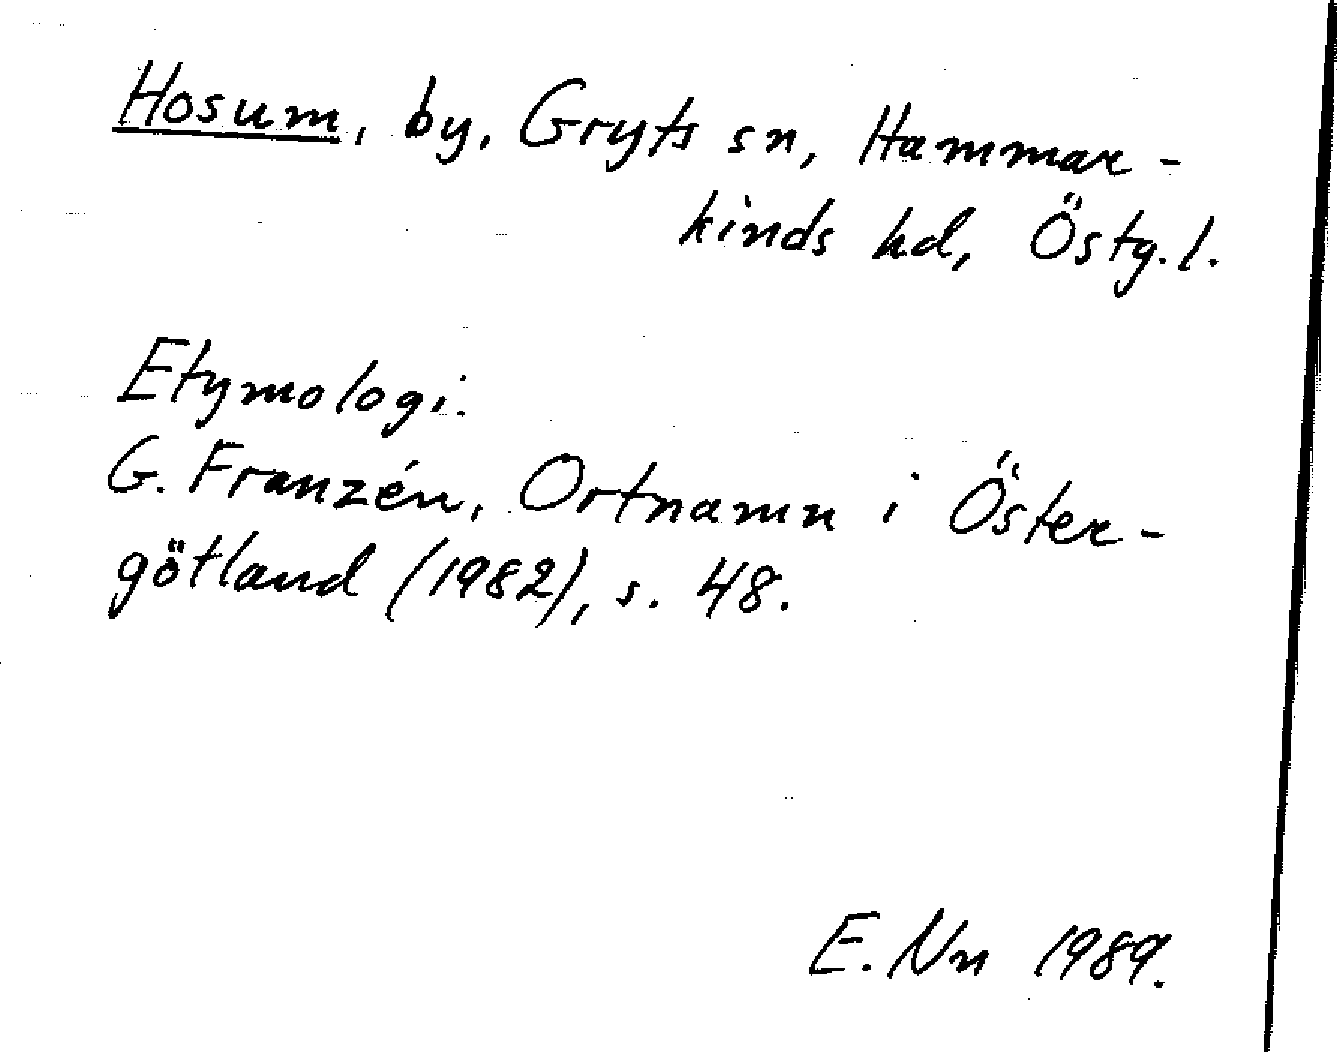 Hosum, by, Gryts sn, Hammar-
kinds hd, Östg.l.
Etymologi:
G. Franzén, Ortnamn i Öster-
götland (1982), s. 48.
E. Nn 1989.